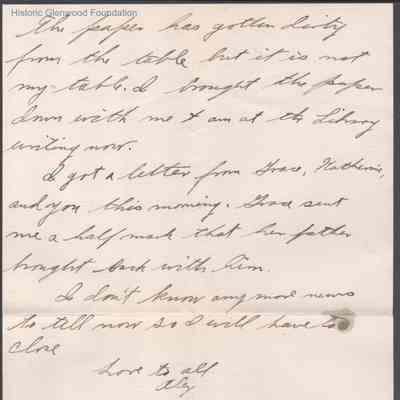 Historic Glenwood Foundation
The paper has gotten dirty
from the table but it is not
my table. I brought the paper
down with me & am at the Library
writing now.
I got a letter from Grace, Katherine,
and you this morning. Grace sent
me a half mark that her father
brought back with him.
I don't know any more news
to tell now so I will have to
close
Love to all.
Aley